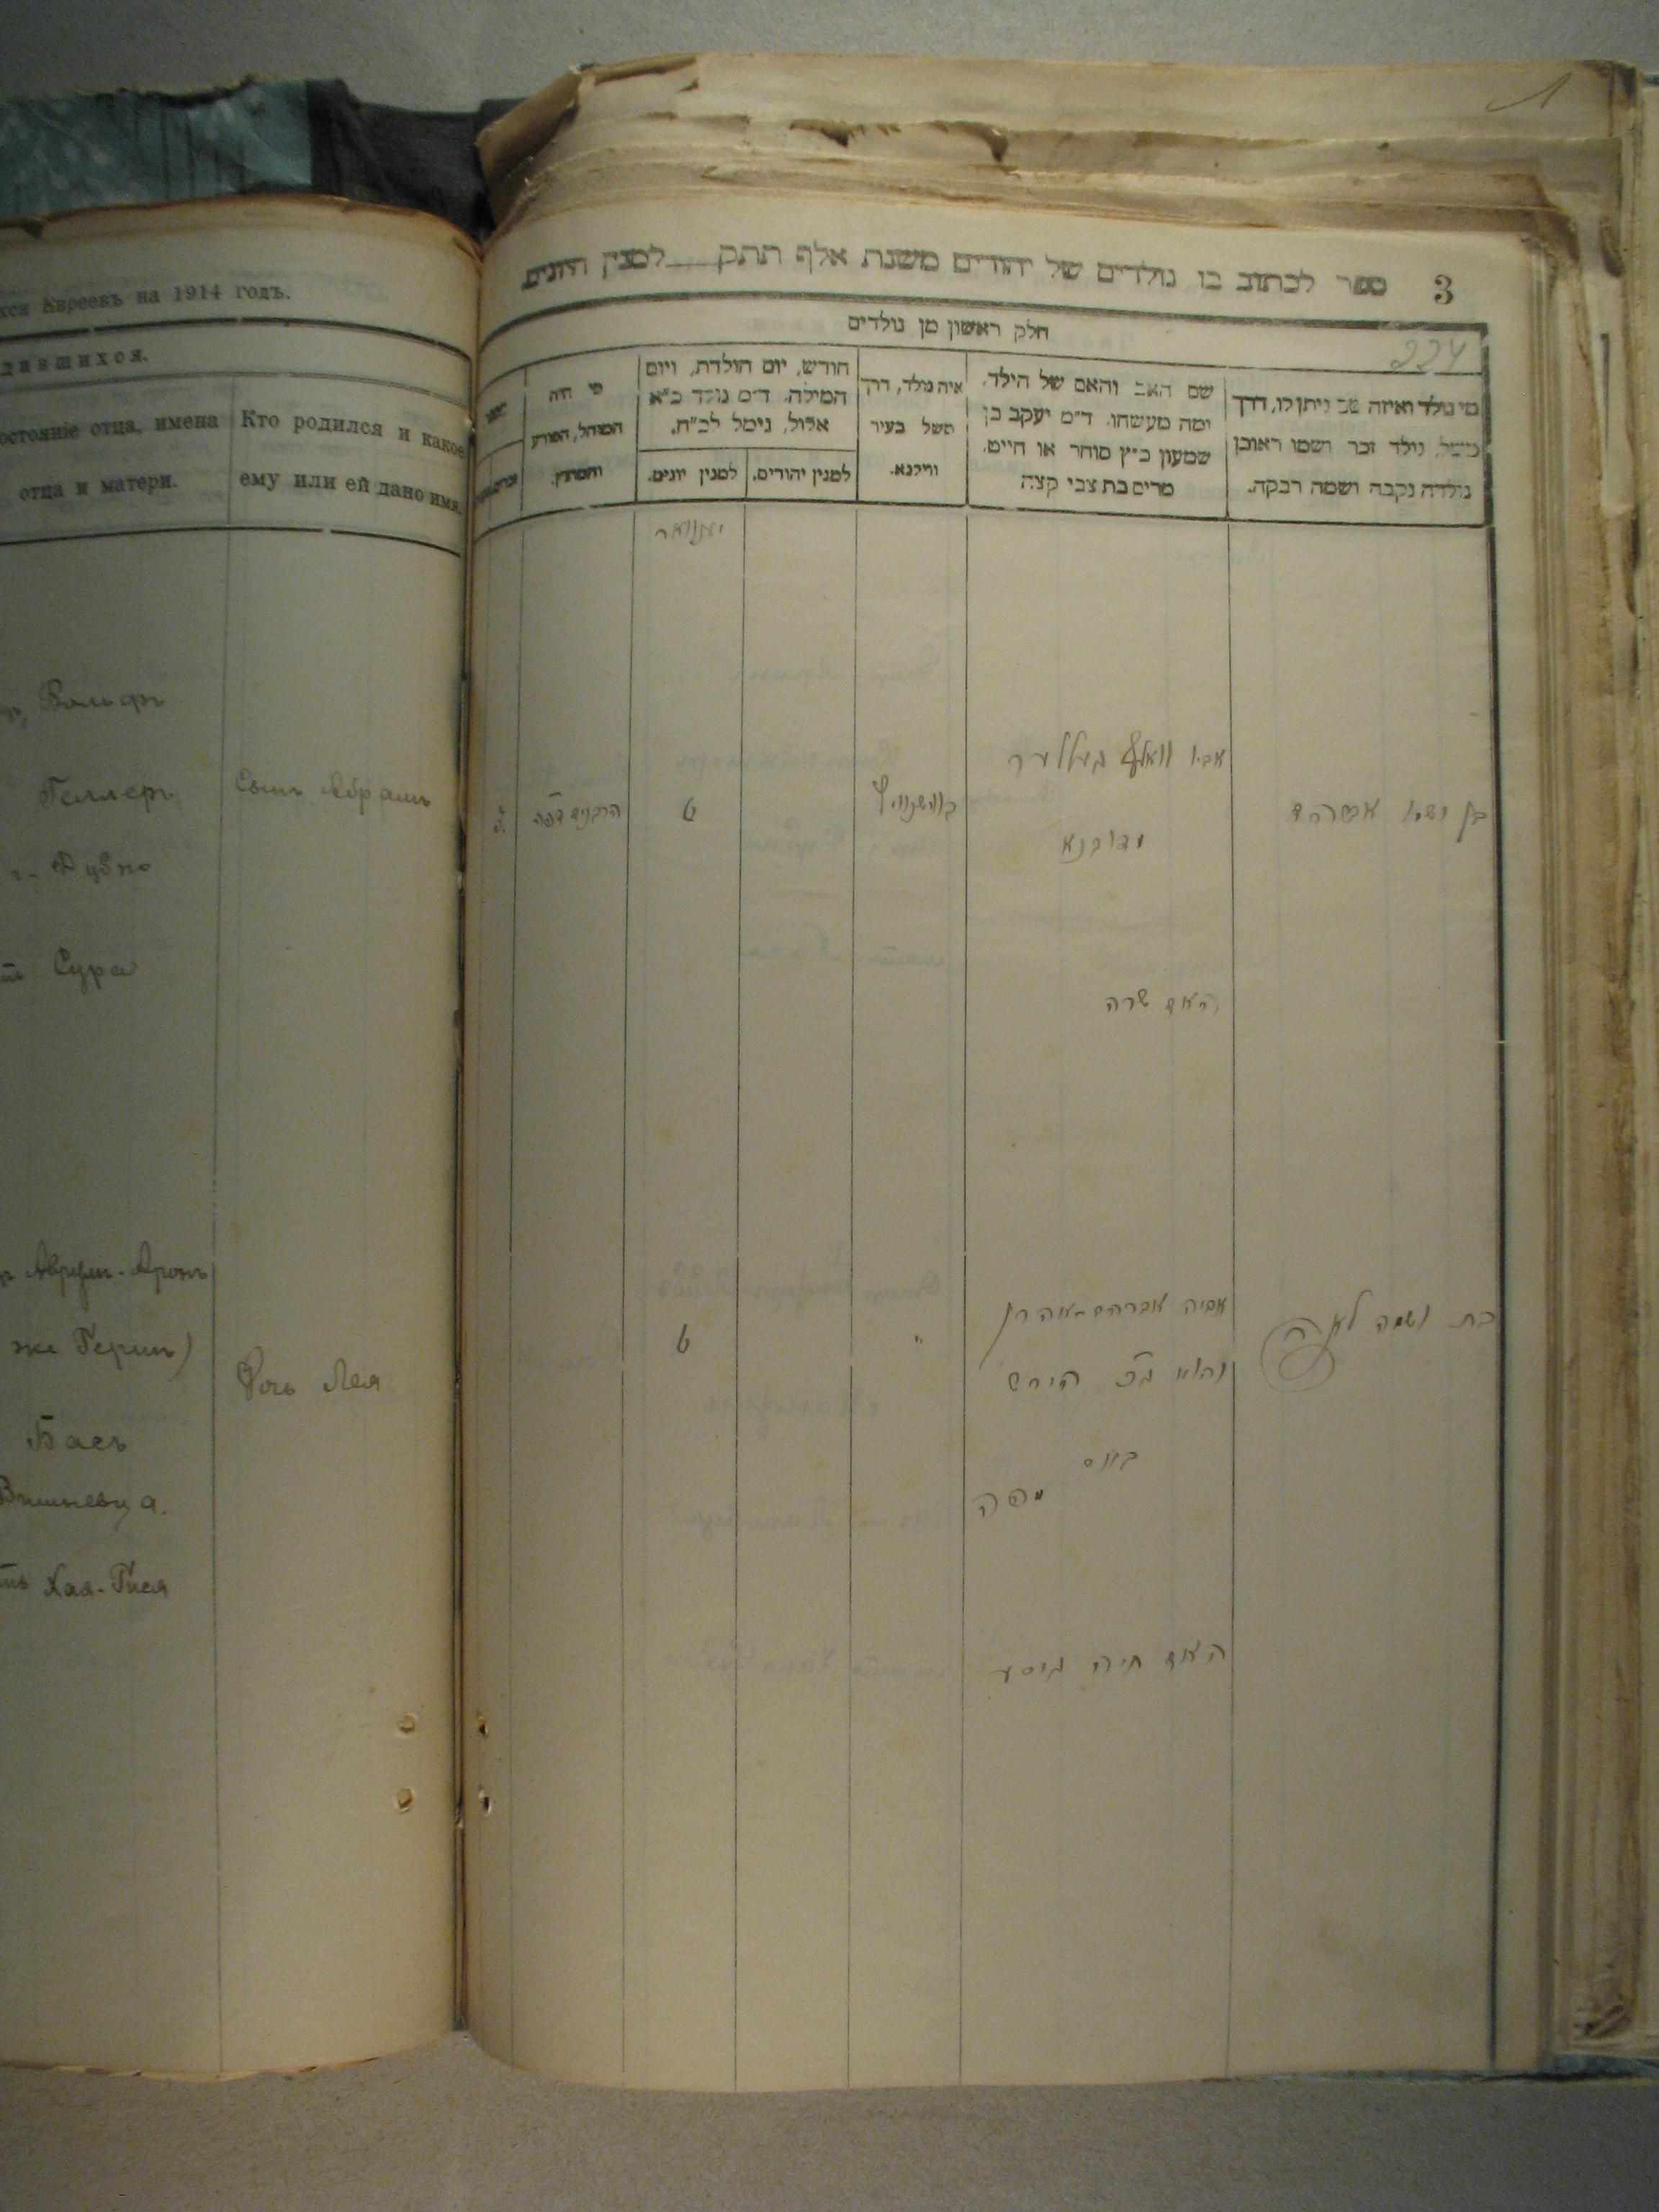 хся Евреевъ на 1914 годъ.
дившихся.
остояніе отца, имена
отца и матери.
Кто родился и какое
ему или ей дано имя.
Вольфъ
Геллеръ
г. Дубно
Сура
Сынъ Абрамъ
же Герши)
Басъ
Вишневца.
Хая-Гися
Дочь Лея
3
ספר לכתוב בו נולדים של יהודים משנת אלף תתק למנין היונים
224
חלק ראשון מן נולדים
מי נולד ואיזה שם ניתן לו, דרך
משל, נולד זכר ושמו ראובן
נולדה נקבה ושמה רבקה.
שם האב והאם של הילד,
ומה מעשהו. ד"מ יעקב בן
שמעון כ"ץ סוחר או חייט,
מרים בת צבי קצה
איה נולד, דרך
משל בעיר
ווילנא.
חודש, יום הולדת, ויום
המילה. ד"מ נולד כ"א
אלול, נימל לכ"ח.
למנין יהודים.
למנין יונים.
מי היה
המוהל, הפורע
והמוצץ.
יאנואר
בן ושמו אברהם
אביו וואלף געללער
מדובנא
האם שרה
6
בת ושמה לאה
אביה אברהם-אהרן
והוא הירש
באס
משה
האם חיה גיסע
"
6